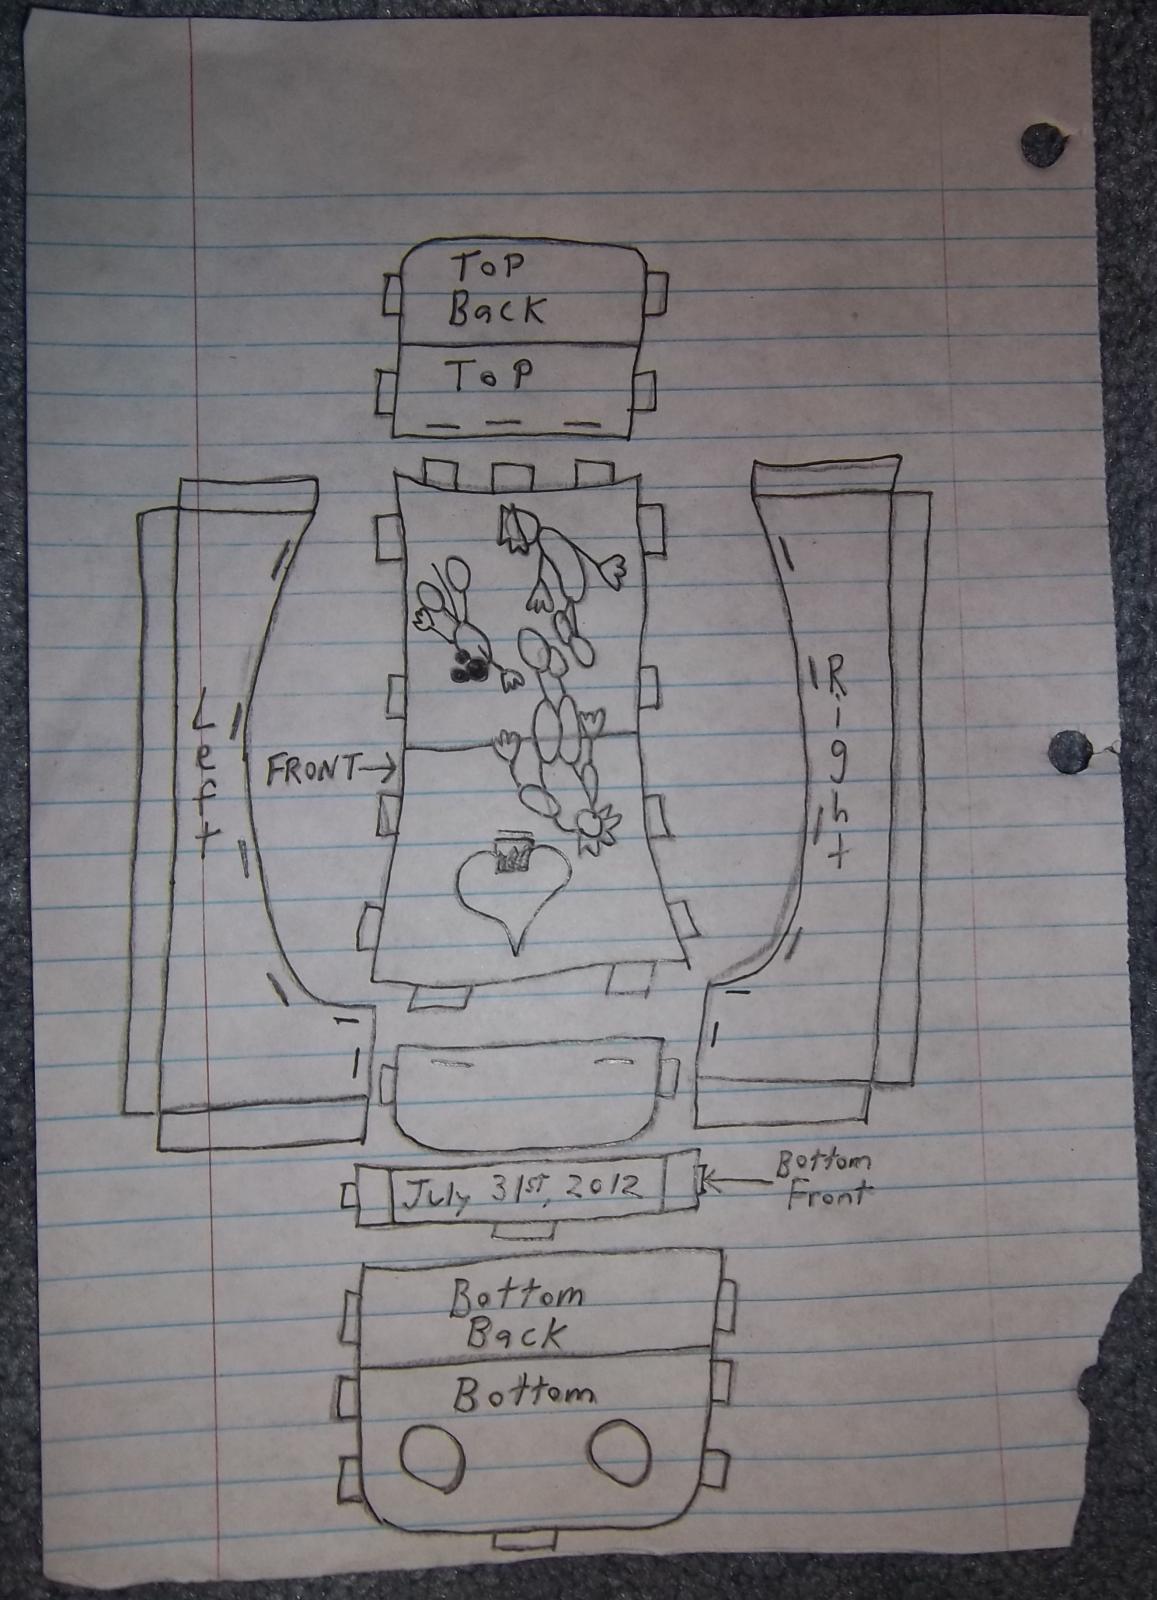 ToP
Back
ToP
Left
FRONT→
Right
July 31ST, 2012
Bottom
Front
Bottom
Back
Bottom